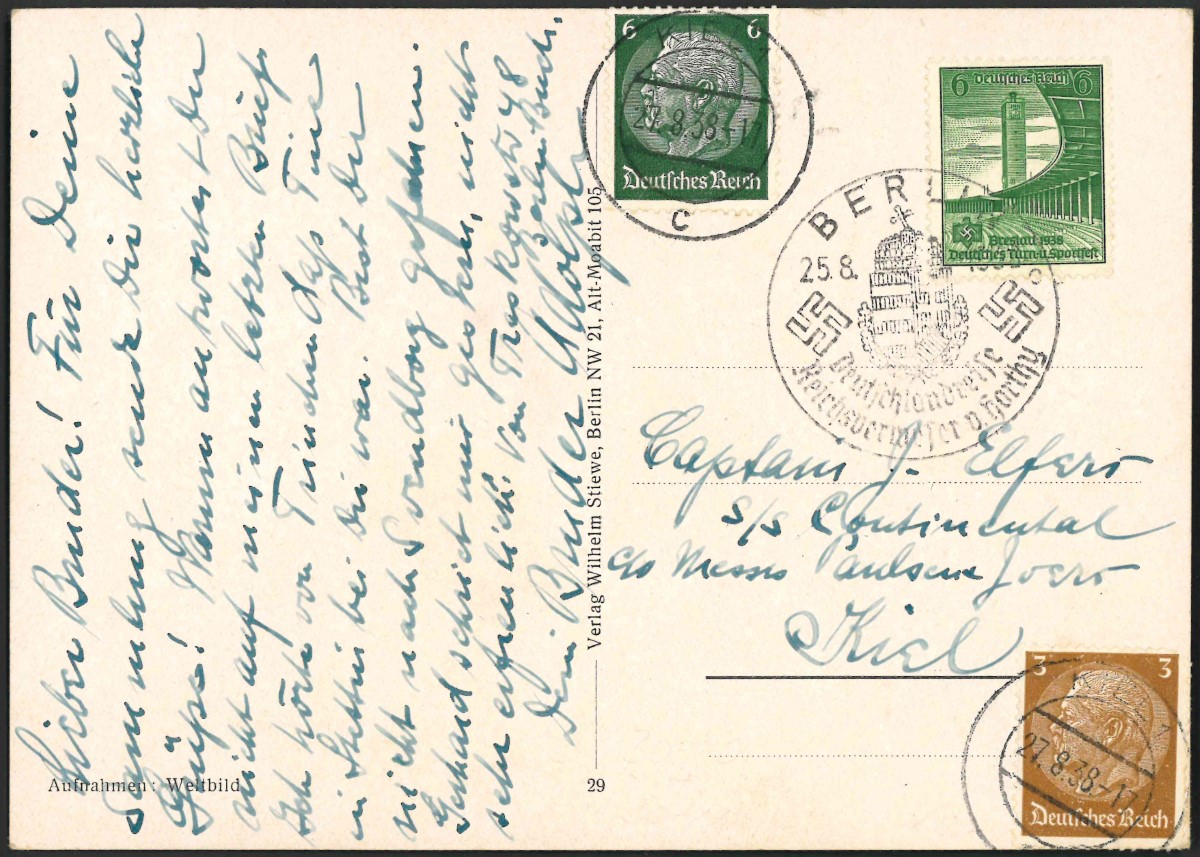 Lieber Bruder! Für Deine
Sammlung sende Dir herzliche
Grüße! Warum antwortest Du
nicht auf meinen letzten Brief?
Ich hörte von Tinchen, daß Tine
in Stettin bei Dir war. Bist Du
nicht nach Svendborg gefahren?
Gerhard schreibt nur gestern, nicht
sehr erfreulich. Von Treskowstr. 48
Dein Bruder Adolf.
Aufnahmen: Weltbild
Verlag Wilhelm Stiewe, Berlin NW 21, Alt-Moabit 105
29
6 6
Deutsches Reich
KIEL 1
27.8.38.-17
C
6 Deutsches Reich 6
Breslau 1938
Deutsches Turn-u. Sportfest
BERLIN
25.8. 1938
Deutschlandreise
Reichsverweser v. Horthy
Captain J. Elfers
S/S Continental
c/o Messrs Paulsen & Ivers
Kiel
3 3
KIEL 1
27.8.38.-17
Deutsches Reich